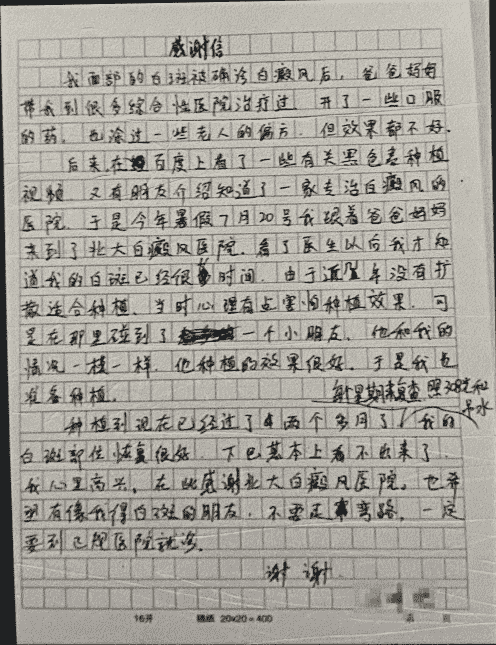 感谢信
我面部的白斑被确诊白癜风后，爸爸妈妈
带我到很多综合性医院治疗过 开了一些口服
的药，也涂过一些老人的偏方，但效果都不好。
后来，在百度上看了一些有关黑色素种植
视频 又有朋友介绍知道了一家专治白癜风的
医院。于是今年暑假7月20号我跟着爸爸妈妈
来到了北大白癜风医院。看了医生以后我才知
道我的白斑已经很时间，由于近年没有扩
散适合种植。当时心理有点害怕种植效果，可
是在那里碰到了一个小朋友，他和我的
情况一模一样，他种植的效果很好。于是我也
准备种植。
每星期来复查 照308光和
吊水
种植到现在已经过了两个多月了，我的
白斑部位恢复很好，下巴基本上看不出来了，
我心里高兴，在此感谢北大白癜风医院。也希
望有像我得白斑的朋友，不要走弯路，一定
要到正规医院就诊。
谢谢
16开 20×20=400 页